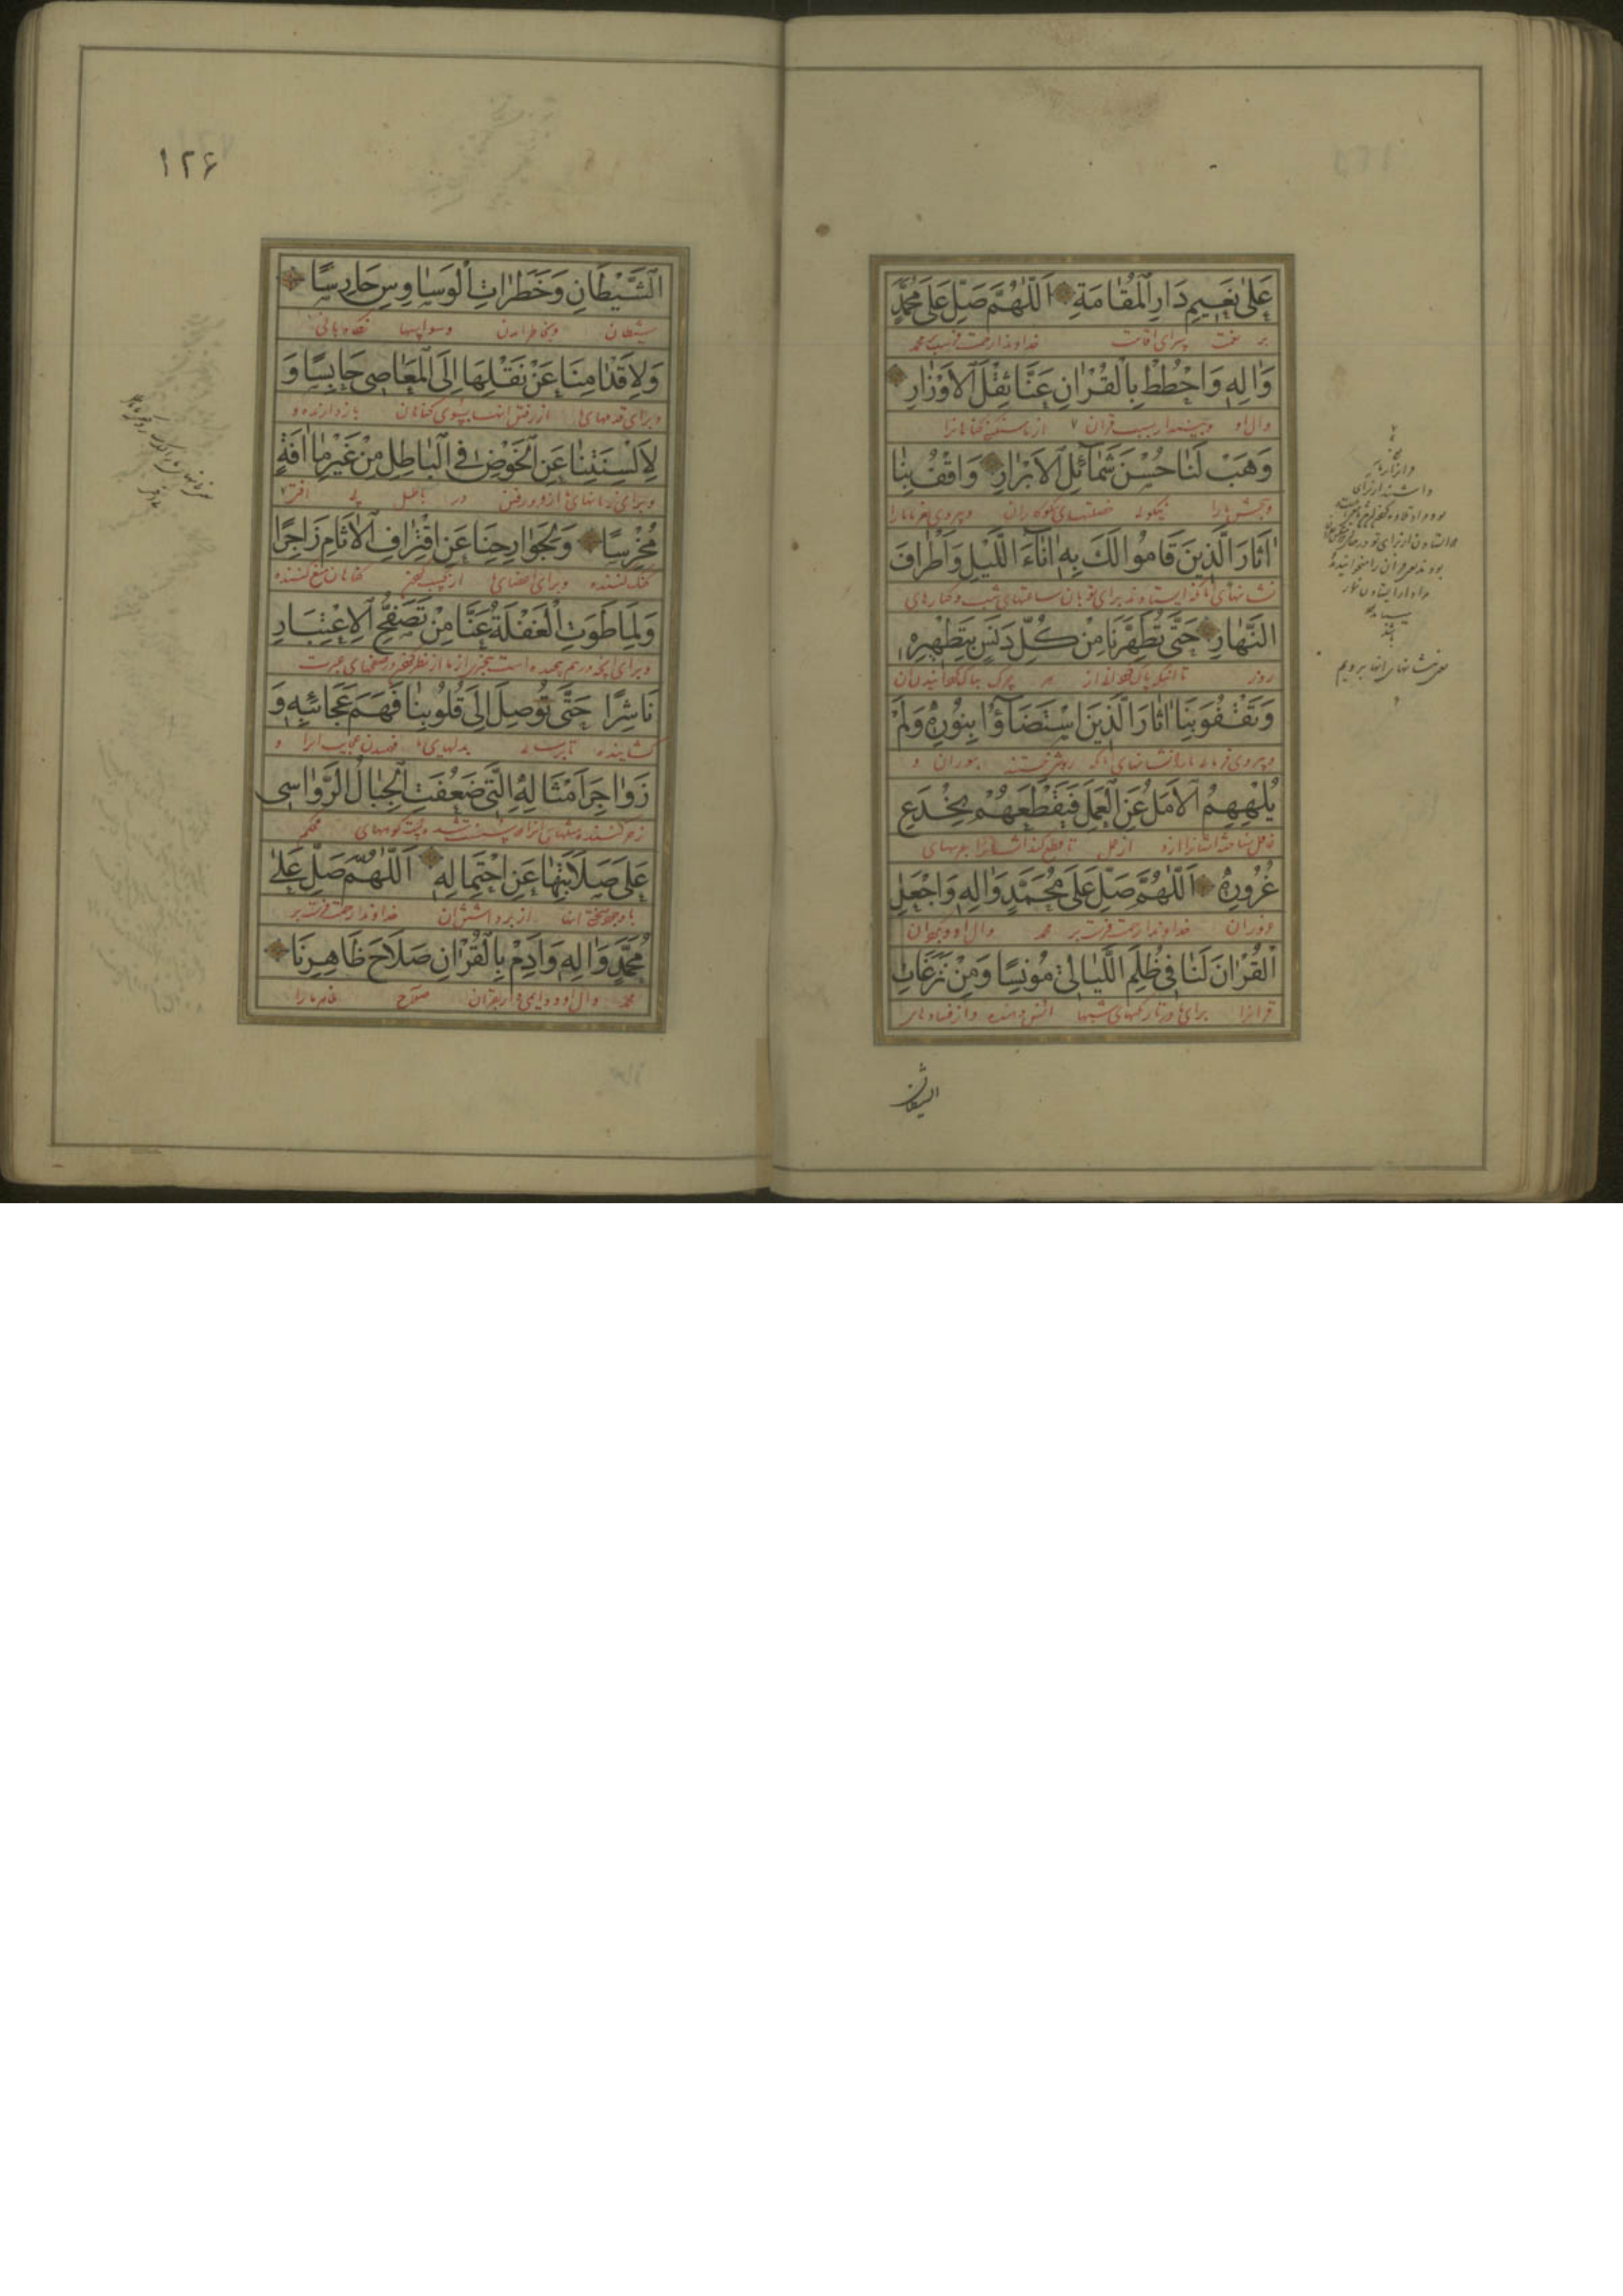 عَلىٰ نَعِيمِ دَارِ الْمُقَامَةِ اَللّٰهُمَّ صَلِّ عَلىٰ مُحَمَّدٍ
بر نعمت سرای اقامت خداوندا رحمت فرست بر محمد
وَاٰلِهِ وَاحْطُطْ بِالْقُرْاٰنِ عَنَّا ثِقْلَ الْاَوْزَارِ
وال او وبینداز بسبب قران از ما سنگینی کناهانرا
وَهَبْ لَنَا حُسْنَ شَمَآئِلِ الْاَبْرَارِ وَاقْفُ بِنَا
وببخش مارا نیکوئی خصلتهای نکوکاران وپیروی بفرما مارا
اٰثَارَ الَّذِينَ قَامُوا لَكَ بِهِ اٰنَآءَ اللَّيْلِ وَاَطْرَافَ
نشانهای انانکه ایستادند برای تو بان ساعتهای شب وکنارهای
النَّهَارِ حَتّٰى تُطَهِّرَنَا مِنْ كُلِّ دَنَسٍ بِتَطْهِيرِهِ
روز تا انکه پاک کنی مارا از هر چرک بپاک کردانیدن ان
وَتَقْفُوَ بِنَا اٰثَارَ الَّذِينَ اسْتَضَآؤُا بِنُورِهِ وَلَمْ
وپیروی فرمائی مارا نشانهای انانکه روشنی جستند بنوران و
يُلْهِهِمُ الْاَمَلُ عَنِ الْعَمَلِ فَيَقْطَعَهُمْ بِخُدَعِ
غافل نساخته ایشانرا ارزو از عمل تا قطع کند ایشانرا بفریبهای
غُرُورِهِ اَللّٰهُمَّ صَلِّ عَلىٰ مُحَمَّدٍ وَاٰلِهِ وَاجْعَلِ
خداوندا رحمت فرست بر محمد وال او وبکردان
الْقُرْاٰنَ لَنَا فِي ظُلَمِ اللَّيَالِي مُونِسًا وَمِنْ نَزَغَاتِ
قرانرا برای ما در تاریکیهای شبها انس دهنده واز فسادهای
الشیطان
معنی نشانهای انها برویم
١٢۶
الشَّيْطَانِ وَخَطَرَاتِ الْوَسَاوِسِ حَارِسًا
شیطان وبخاطر امدن وسواسها نگاه بانی
وَلِاَقْدَامِنَا عَنْ نَقْلِهَا اِلَى الْمَعَاصِي حَابِسًا وَ
وبرای قدمهای ما از رفتن انها بسوی کناهان بازدارنده و
لِاَلْسِنَتِنَا عَنِ الْخَوْضِ فِي الْبَاطِلِ مِنْ غَيْرِ مَا اٰفَةٍ
وبرای زبانهای ما از فرو رفتن در باطل بی افتی
مُخْرِسًا وَلِجَوَارِحِنَا عَنِ اقْتِرَافِ الْاٰثَامِ زَاجِرًا
کنک کننده وبرای اعضای ما از کسب کناهان منع کننده
وَلِمَا طَوَتِ الْغَفْلَةُ عَنَّا مِنْ تَصَفُّحِ الْاِعْتِبَارِ
وبرای انچه درهم پیچیده است بیخبری از ما از نظر کردن در صفحهای عبرت
نَاشِرًا حَتّٰى تُوصِلَ اِلىٰ قُلُوبِنَا فَهْمَ عَجَائِبِهِ وَ
کشاینده تا برسانی بدلهای ما فهمیدن عجایب انرا و
زَوَاجِرَ اَمْثَالِهِ الَّتِي ضَعُفَتِ الْجِبَالُ الرَّوَاسِي
زجر کننده مثلهای انرا که سست شده کوههای محکم
عَلىٰ صَلَابَتِهَا عَنِ احْتِمَالِهِ اَللّٰهُمَّ صَلِّ عَلىٰ
با وجود سختی انها از برداشتن ان خداوندا رحمت فرست بر
مُحَمَّدٍ وَاٰلِهِ وَاَدِمْ بِالْقُرْاٰنِ صَلَاحَ ظَاهِرِنَا
محمد وال او ودایمی دار بقران صلاح ظاهر مارا